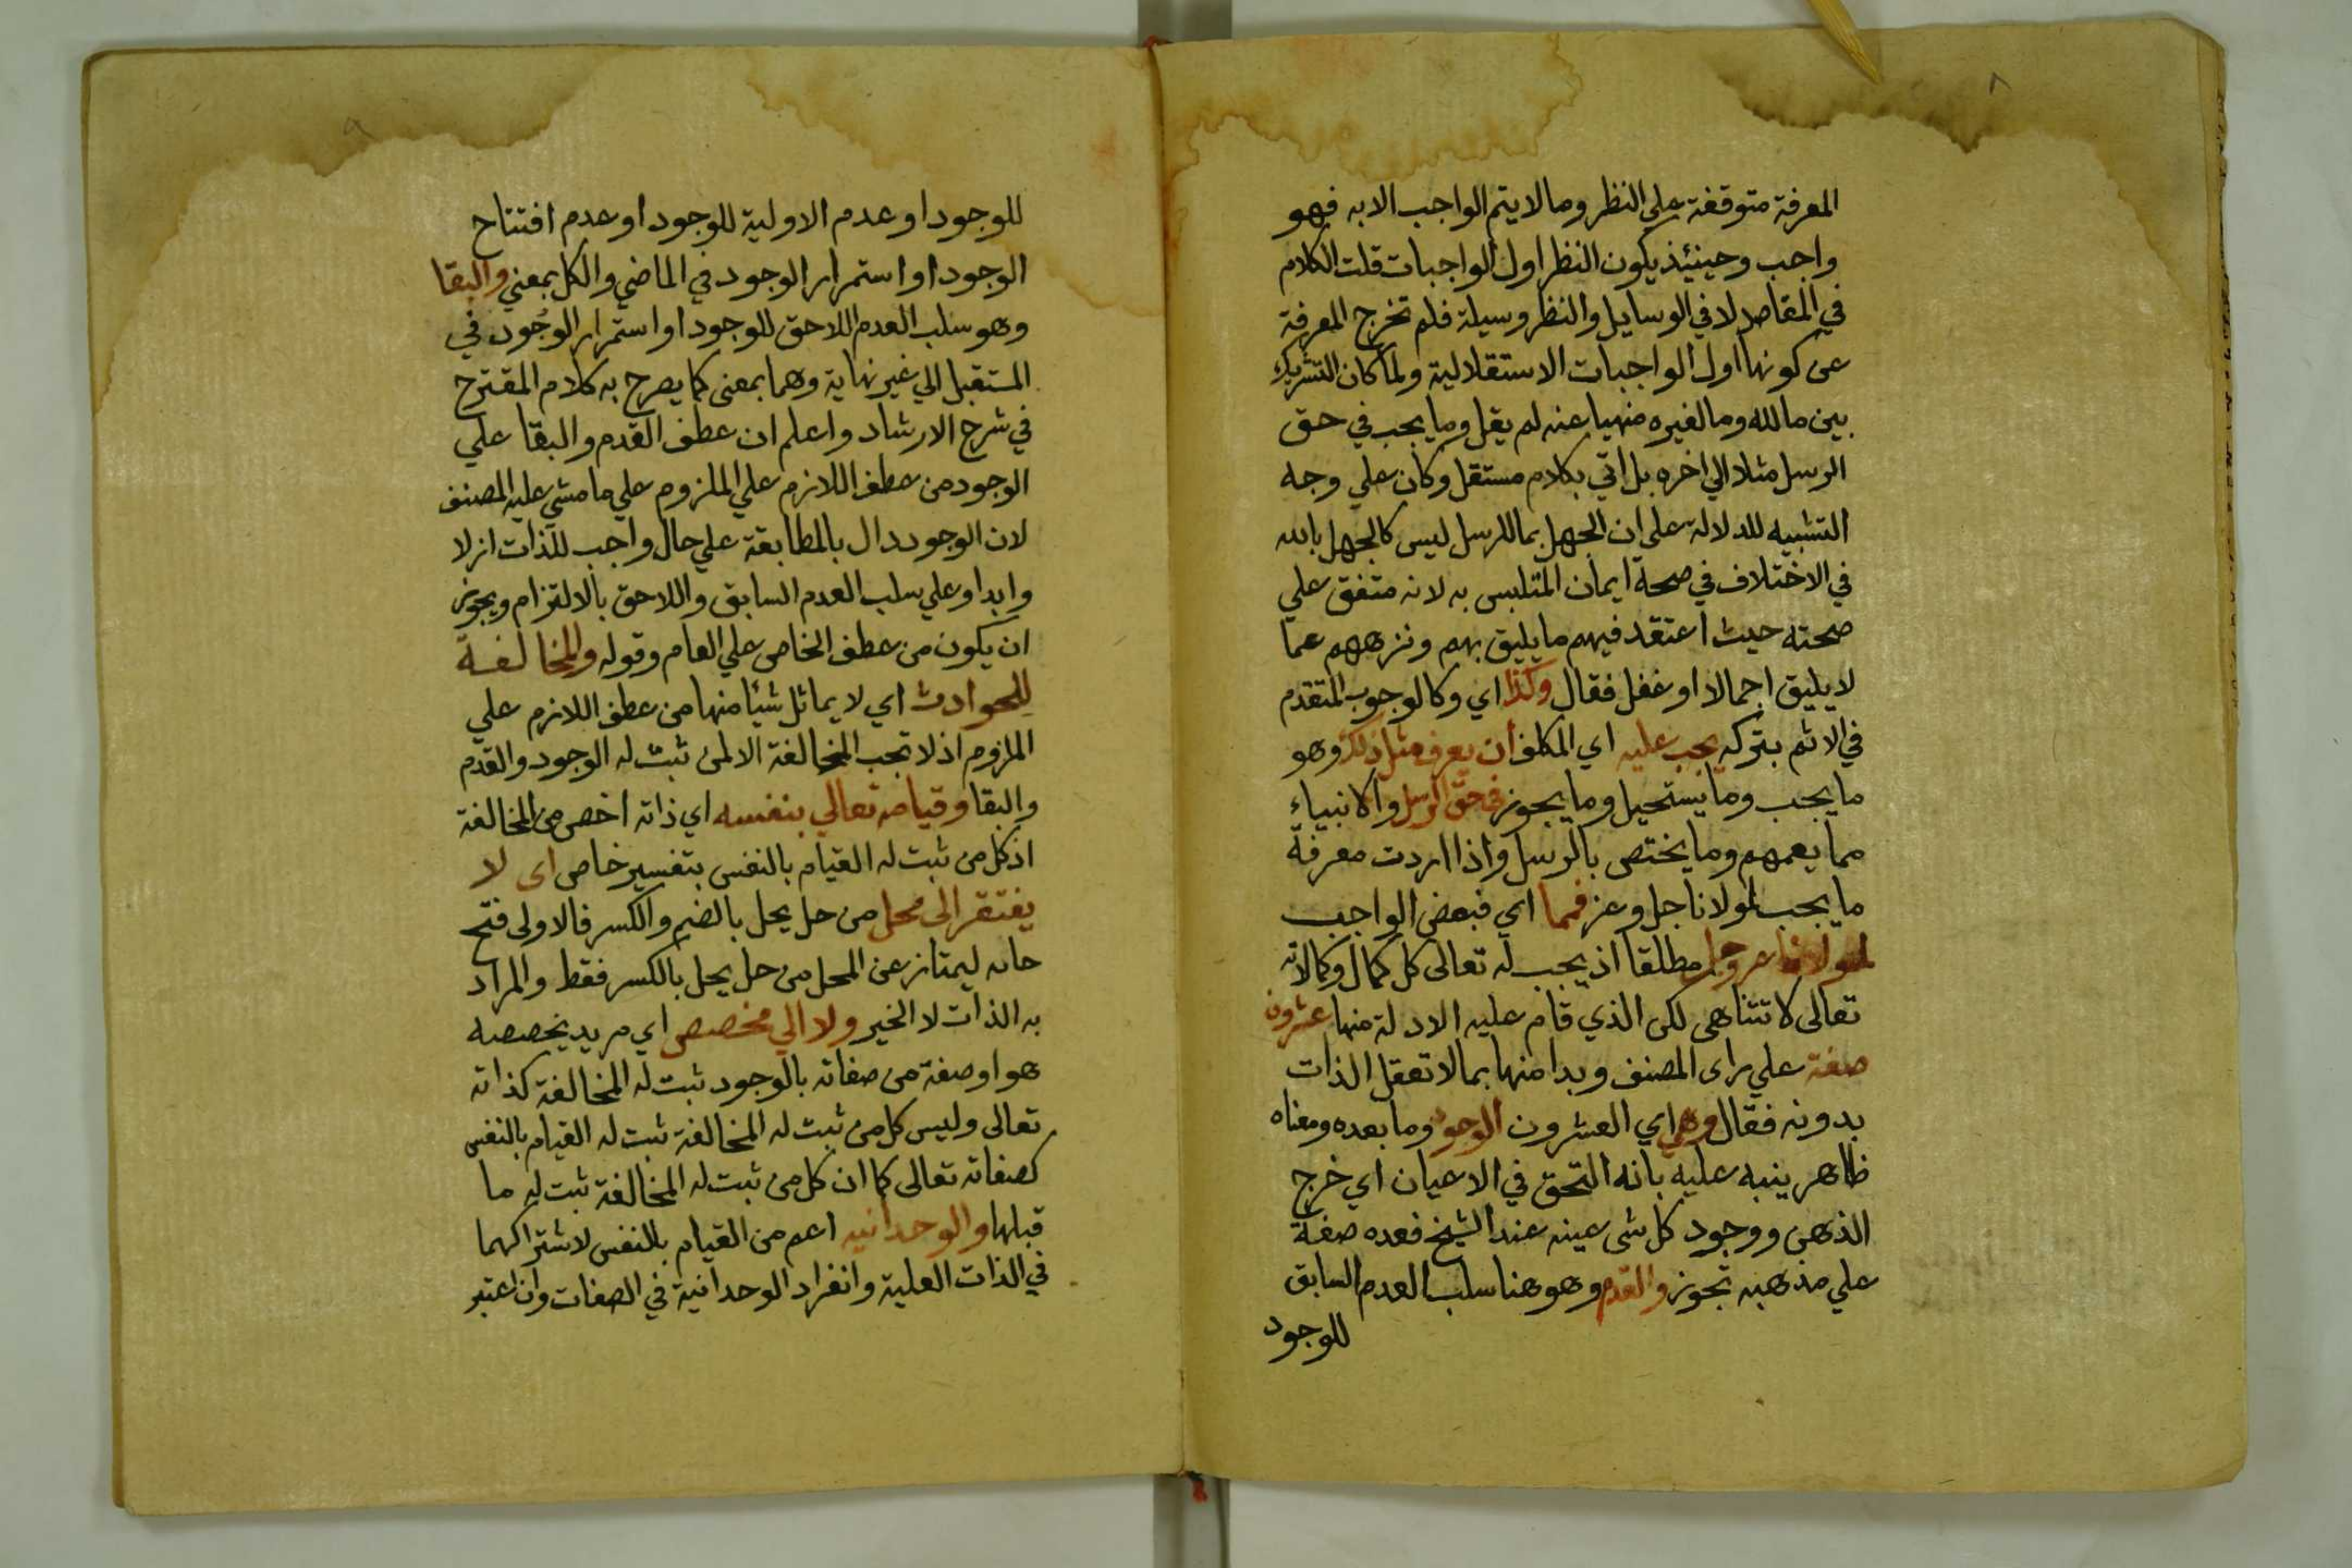 ٨
المعرفة متوقفة علي النظر وما لا يتم الواجب الا به فهو
واجب وحينئذ يكون النظر اول الواجبات قلت الكلام
في المقاصد لا في الوسايل والنظر وسيلة فلم تخرج المعرفة
عن كونها اول الواجبات الاستقلالية ولما كان التشريك
بين ما لله وما لغيره منهيا عنه لم يقل وما يجب في حق
الرسل مثلا الي اخره بل اتي بكلام مستقل وكان علي وجه
التشبيه للدلالة علي ان الجهل بما للرسل ليس كالجهل بالله
في الاختلاف في صحة ايمان المتلبس به لانه متفق علي
صحته حيث اعتقد فيهم ما يليق بهم ونزههم عما
لا يليق اجمالا او غفل فقال وكذا اي وكالوجوب المتقدم
في الاثم بتركه يجب عليه اي المكلف ان يعرف مثل ذلك وهو
ما يجب وما يستحيل وما يجوز في حق الرسل والانبياء
مما يعمهم وما يختص بالرسل واذا اردت معرفة
ما يجب لمولانا جل وعز فمما اي فبعض الواجب
لمولانا عز وجل مطلقا اذ يجب له تعالى كل كمال وكمالاته
تعالى لا تتناهى لكن الذي قام عليه الادلة منها عشرون
صفة علي راى المصنف وبدا منها بما لا تعقل الذات
بدونه فقال وهي اي العشرون الوجود وما بعده ومعناه
ظاهر ينبه عليه بانه التحق في الاعيان اي خرج
الذهن ووجود كل شى عينه عند الشيخ فعده صفة
علي مذهبه تجوز والقدم وهو هنا سلب العدم السابق
للوجود
٩
للوجود او عدم الاولية للوجود او عدم افتتاح
الوجود او استمرار الوجود في الماضي والكل بمعني والبقا
وهو سلب العدم اللاحق للوجود او استمرار الوجود في
المستقبل الي غير نهاية وهما بمعنى كما يصرح به كلام المقترح
في شرح الارشاد واعلم ان عطف القدم والبقا علي
الوجود من عطف اللازم علي الملزوم علي ما مشي عليه المصنف
لان الوجود دال بالمطابقة علي حال واجب للذات ازلا
وابدا وعلي سلب العدم السابق واللاحق بالالتزام ويجوز
ان يكون من عطف الخاص علي العام وقوله والمخالفة
للحوادث اي لا يماثل شيًا منها من عطف اللازم علي
الملزوم اذ لا تجب المخالفة الا لمن ثبت له الوجود والقدم
والبقا وقيامه تعالي بنفسه اي ذاته اخص من المخالفة
اذ كل من ثبت له القيام بالنفس بتفسير خاص اى لا
يفتقر الى محل من حل يحل بالضم والكسر فالاولى فتح
حائه ليمتاز عن المحل من حل يحل بالكسر فقط والمراد
به الذات لا الخير ولا الي مخصص اي مريد يخصصه
هو او صفة من صفاته بالوجود ثبت له المخالفة كذاته
تعالى وليس كل من ثبت له المخالفة ثبت له القيام بالنفس
كصفاته تعالى كما ان كل من ثبت له المخالفة ثبت له ما
قبلها والوحدانيه اعم من القيام بالنفس لاشتراكهما
في الذات العلية وانفراد الوحدانية في الصفات وان اعتبر